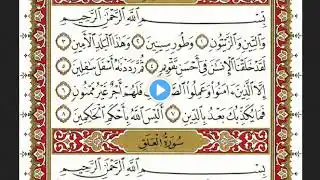 بِسْمِ اللَّهِ الرَّحْمَٰنِ الرَّحِيمِ
وَالتِّينِ وَالزَّيْتُونِ ١ وَطُورِ سِينِينَ ٢ وَهَٰذَا الْبَلَدِ الْأَمِينِ ٣
لَقَدْ خَلَقْنَا الْإِنسَانَ فِي أَحْسَنِ تَقْوِيمٍ ٤ ثُمَّ رَدَدْنَاهُ أَسْفَلَ سَافِلِينَ ٥
إِلَّا الَّذِينَ آمَنُوا وَعَمِلُوا فَلَهُمْ أَجْرٌ غَيْرُ مَمْنُونٍ ٦
فَمَا يُكَذِّبُكَ بَعْدُ بِالدِّينِ ٧ أَلَيْسَ اللَّهُ بِأَحْكَمِ الْحَاكِمِينَ ٨
سُورَةُ الْعَلَقِ
بِسْمِ اللَّهِ الرَّحْمَٰنِ الرَّحِيمِ